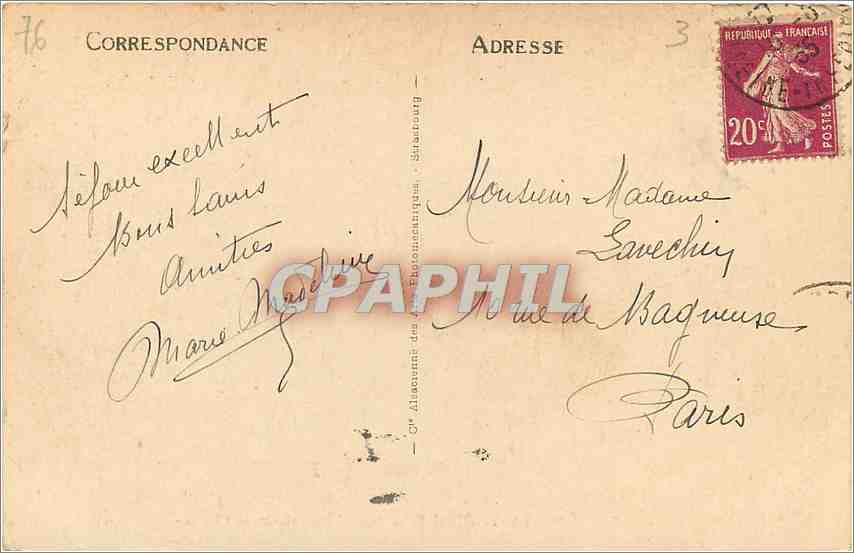 76
CORRESPONDANCE
ADRESSE
3
REPUBLIQUE FRANÇAISE
20c
POSTES
Séjour excellent
Bons bains
Amitiés
Marie Madeleine
Cie Alsacienne des Arts Photomécaniques, - Strasbourg
Monsieur Madame
Lavechin
10 rue de Bagneuse
Paris
CPAPHIL